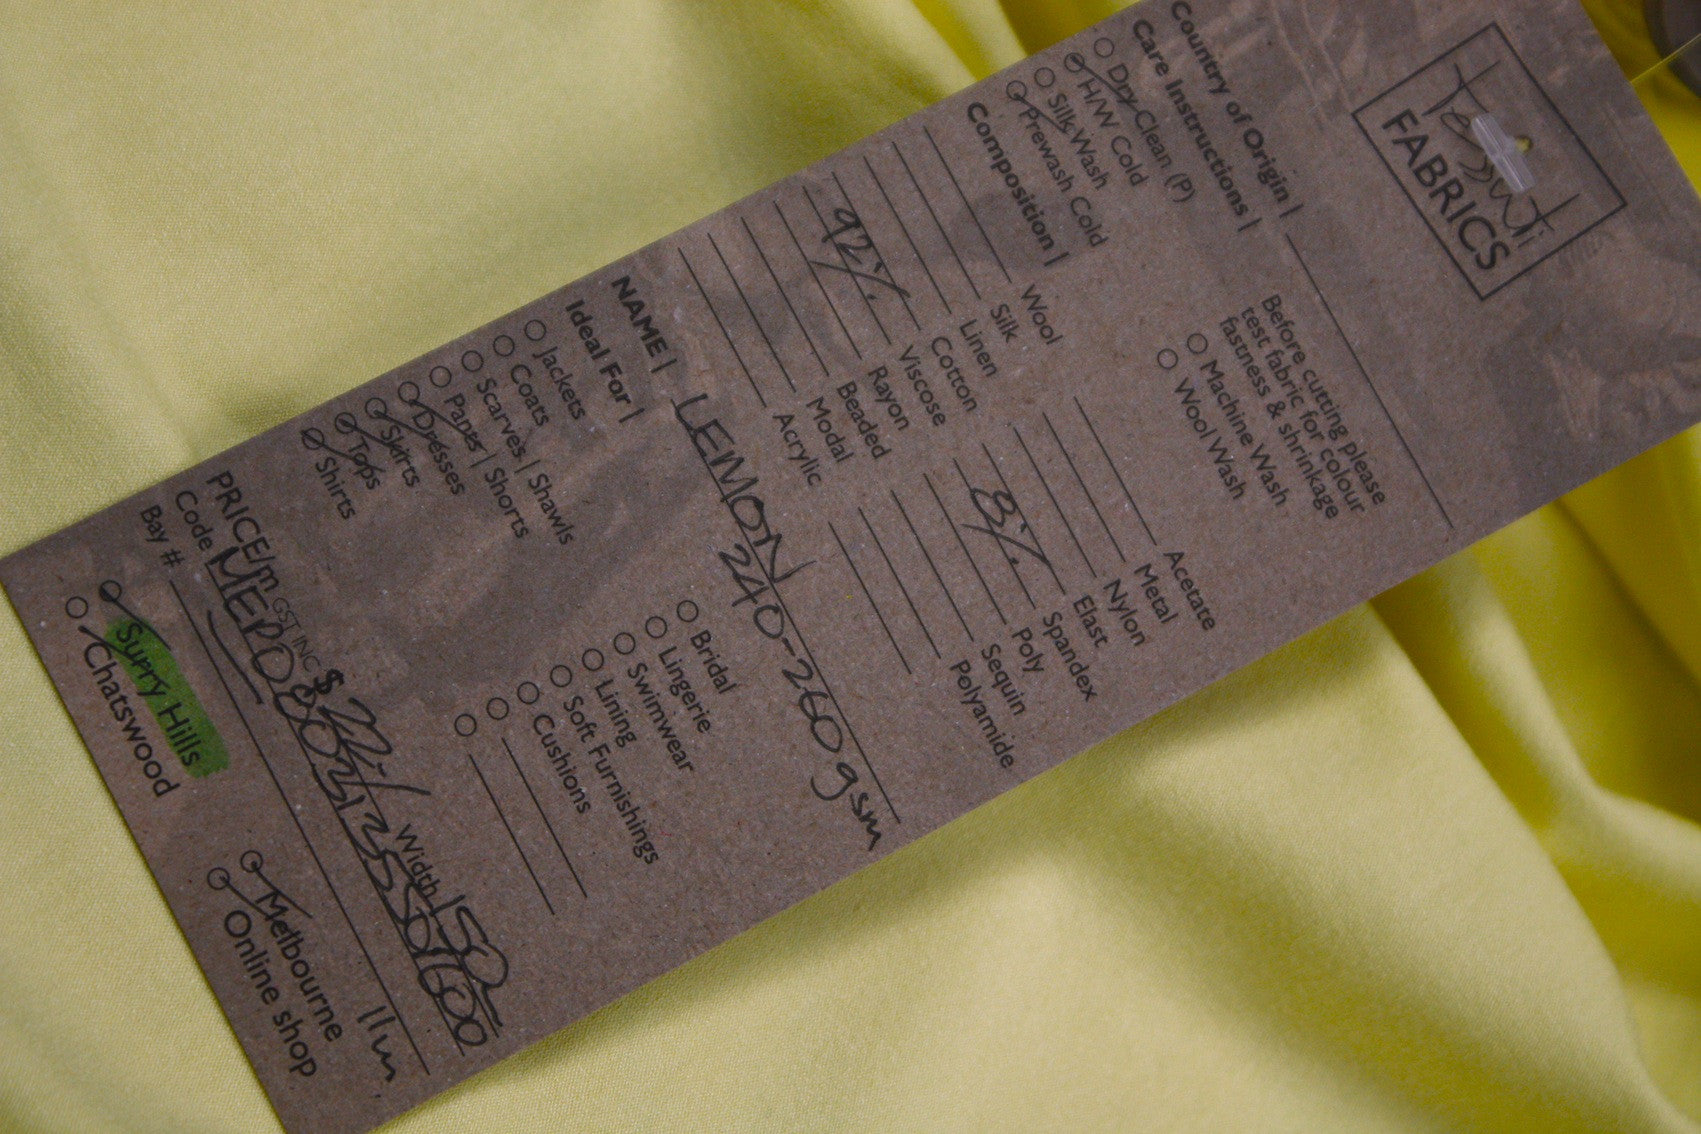 Tessuti
FABRICS
Country of Origin |
Care Instructions |
Dry Clean (P)
H/W Cold
Silk Wash
Prewash Cold
Before cutting please
test fabric for colour
fastness & shrinkage
Machine Wash
Wool Wash
Composition |
Wool
Silk
Linen
Cotton
92% Viscose
Rayon
Beaded
Modal
Acrylic
Acetate
Metal
Nylon
Elast
8% Spandex
Poly
Sequin
Polyamide
NAME | LEMON
240-260gsm
Ideal For |
Jackets
Coats
Scarves | Shawls
Panes | Shorts
Dresses
Skirts
Tops
Shirts
Bridal
Lingerie
Swimwear
Lining
Soft Furnishings
Cushions
PRICE/m GST INC $ Width 150
Code
Bay # 11m
Surry Hills
Chatswood
Melbourne
Online shop